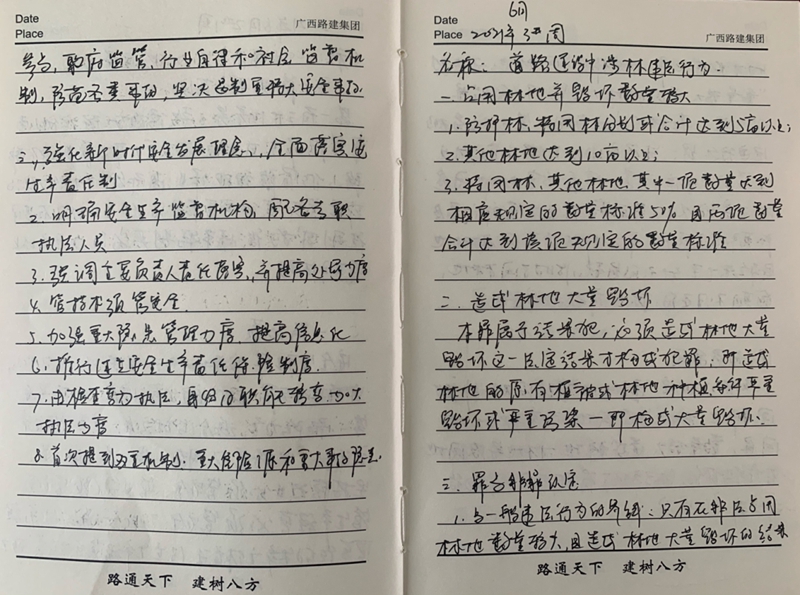 Date
Place
广西路建集团
参与、政府监管、行业自律和社会监督机
制,防范各类事故,坚决遏制重特大安全事故
三,强化新时代安全发展理念、全面落实安
生产责任制
2.明确安全生产监督机构,配备专职
执法人员
3.强调主要负责人责任落实,并提高处罚力度
4.管技术须管安全.
5.加强重大隐患管理力度 提高信息化
6.推行连带安全生产责任保险制度.
7.由检查变为执法,身份及职能转变加大
执法力度
8.首次提到双重机制.重大危险源和重大事故隐患.
路通天下 建树八方
Date
Place 2021年
6月
周
广西路建集团
名称: 道路建设中涉林违法行为.
一.占用林地并毁坏数量较大
1.防护林、特用林分别或合计达到5亩以上;
2.其他林地达到10亩以上;
3.特用林、其他林地,其中一项数量达到
相应规定的数量标准50%且两项数量
合计达到该项规定的数量标准
二.造成林地大量毁坏
本罪属于结果犯,必须造成林地大量
毁坏这一法定结果才构成犯罪;即造成
林地的原有植被或林地种植条件严重
毁坏或严重污染一即构成大量毁坏.
三.罪与非罪认定
1.与一般违法行为的界线:只有在非法占用
林地数量较大,且造成林地大量毁坏的结果
路通天下 建树八方